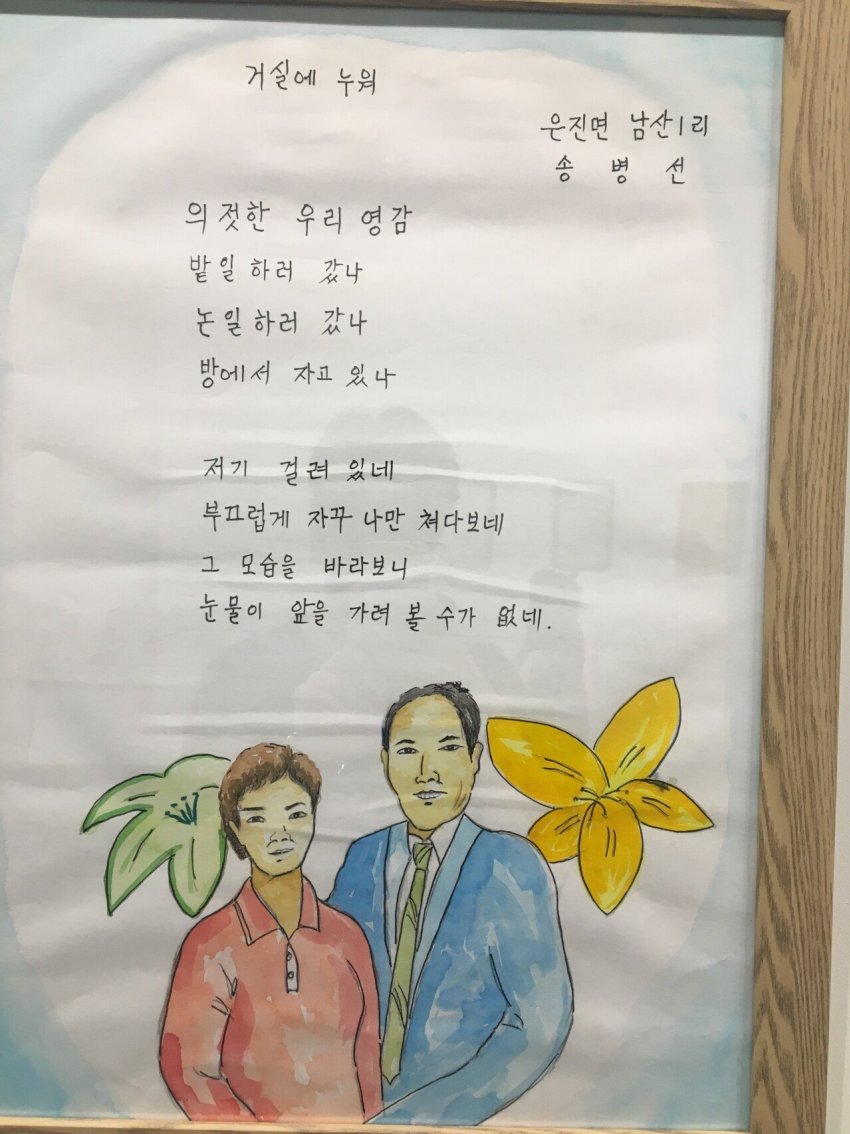 거실에 누워
은진면 남산1리
송 병 선
의젓한 우리 영감
밭일하러 갔나
논일하러 갔나
방에서 자고 있나
저기 걸려 있네
부끄럽게 자꾸 나만 쳐다보네
그 모습을 바라보니
눈물이 앞을 가려 볼 수가 없네.